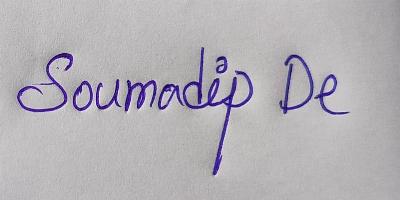 Soumadip De